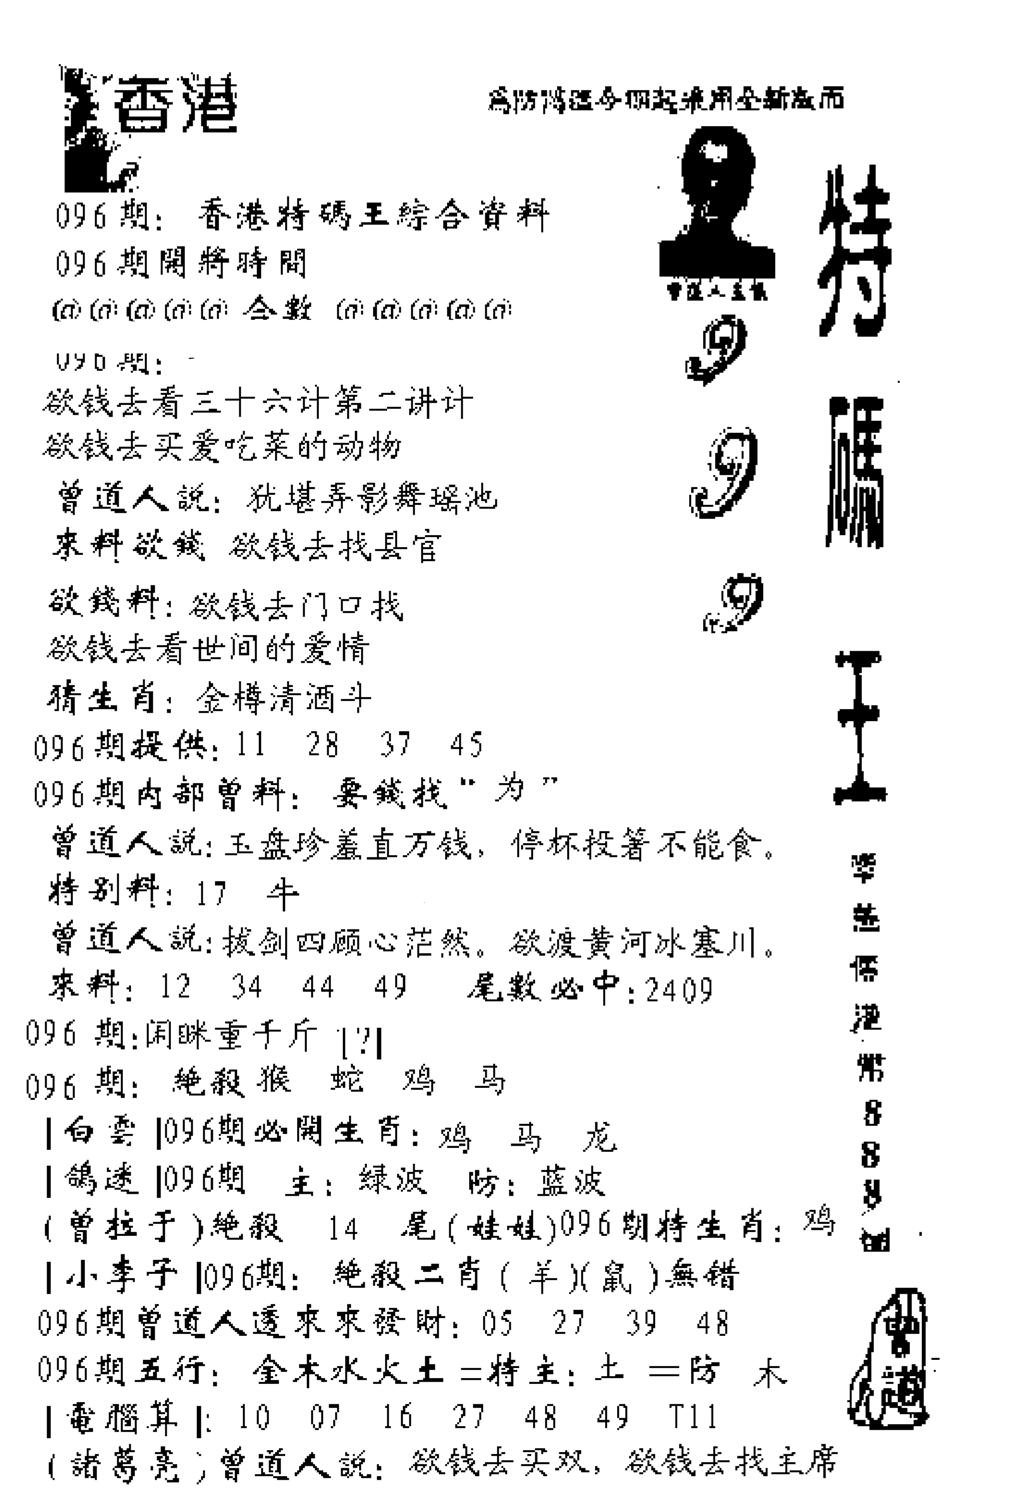 香港
096期：香港特碼王綜合資料
096期開將時間
@@@@@ 合數 @@@@@
096期：-
欲钱去看三十六计第二讲计
欲钱去买爱吃菜的动物
曾道人説：犹堪弄影舞瑶池
來料欲錢 欲钱去找县官
欲錢料：欲钱去门口找
欲钱去看世间的爱情
猜生肖：金樽清酒斗
096期提供：11 28 37 45
096期内部曾料：要錢找“为”
曾道人説：玉盘珍羞直万钱，停杯投箸不能食。
特别料：17 牛
曾道人説：拔剑四顾心茫然。欲渡黄河冰塞川。
來料：12 34 44 49 尾數必中：2409
096 期：闲眯重千斤 [?]
096 期：絶殺猴 蛇 鸡 马
|白雲|096期必開生肖：鸡 马 龙
|鴿迷|096期 主：绿波 防：蓝波
(曾拉于)絶殺 14 尾(娃娃)096期特生肖：鸡
|小李子|096期：絶殺二肖(羊)(鼠)無错
096期曾道人透來來發財：05 27 39 48
096期五行：金木水火土=特主：土 =防 木
|電腦算|：10 07 16 27 48 49 T11
(諸葛亮)曾道人説：欲钱去买双，欲钱去找主席
特碼王
999
888
曾道